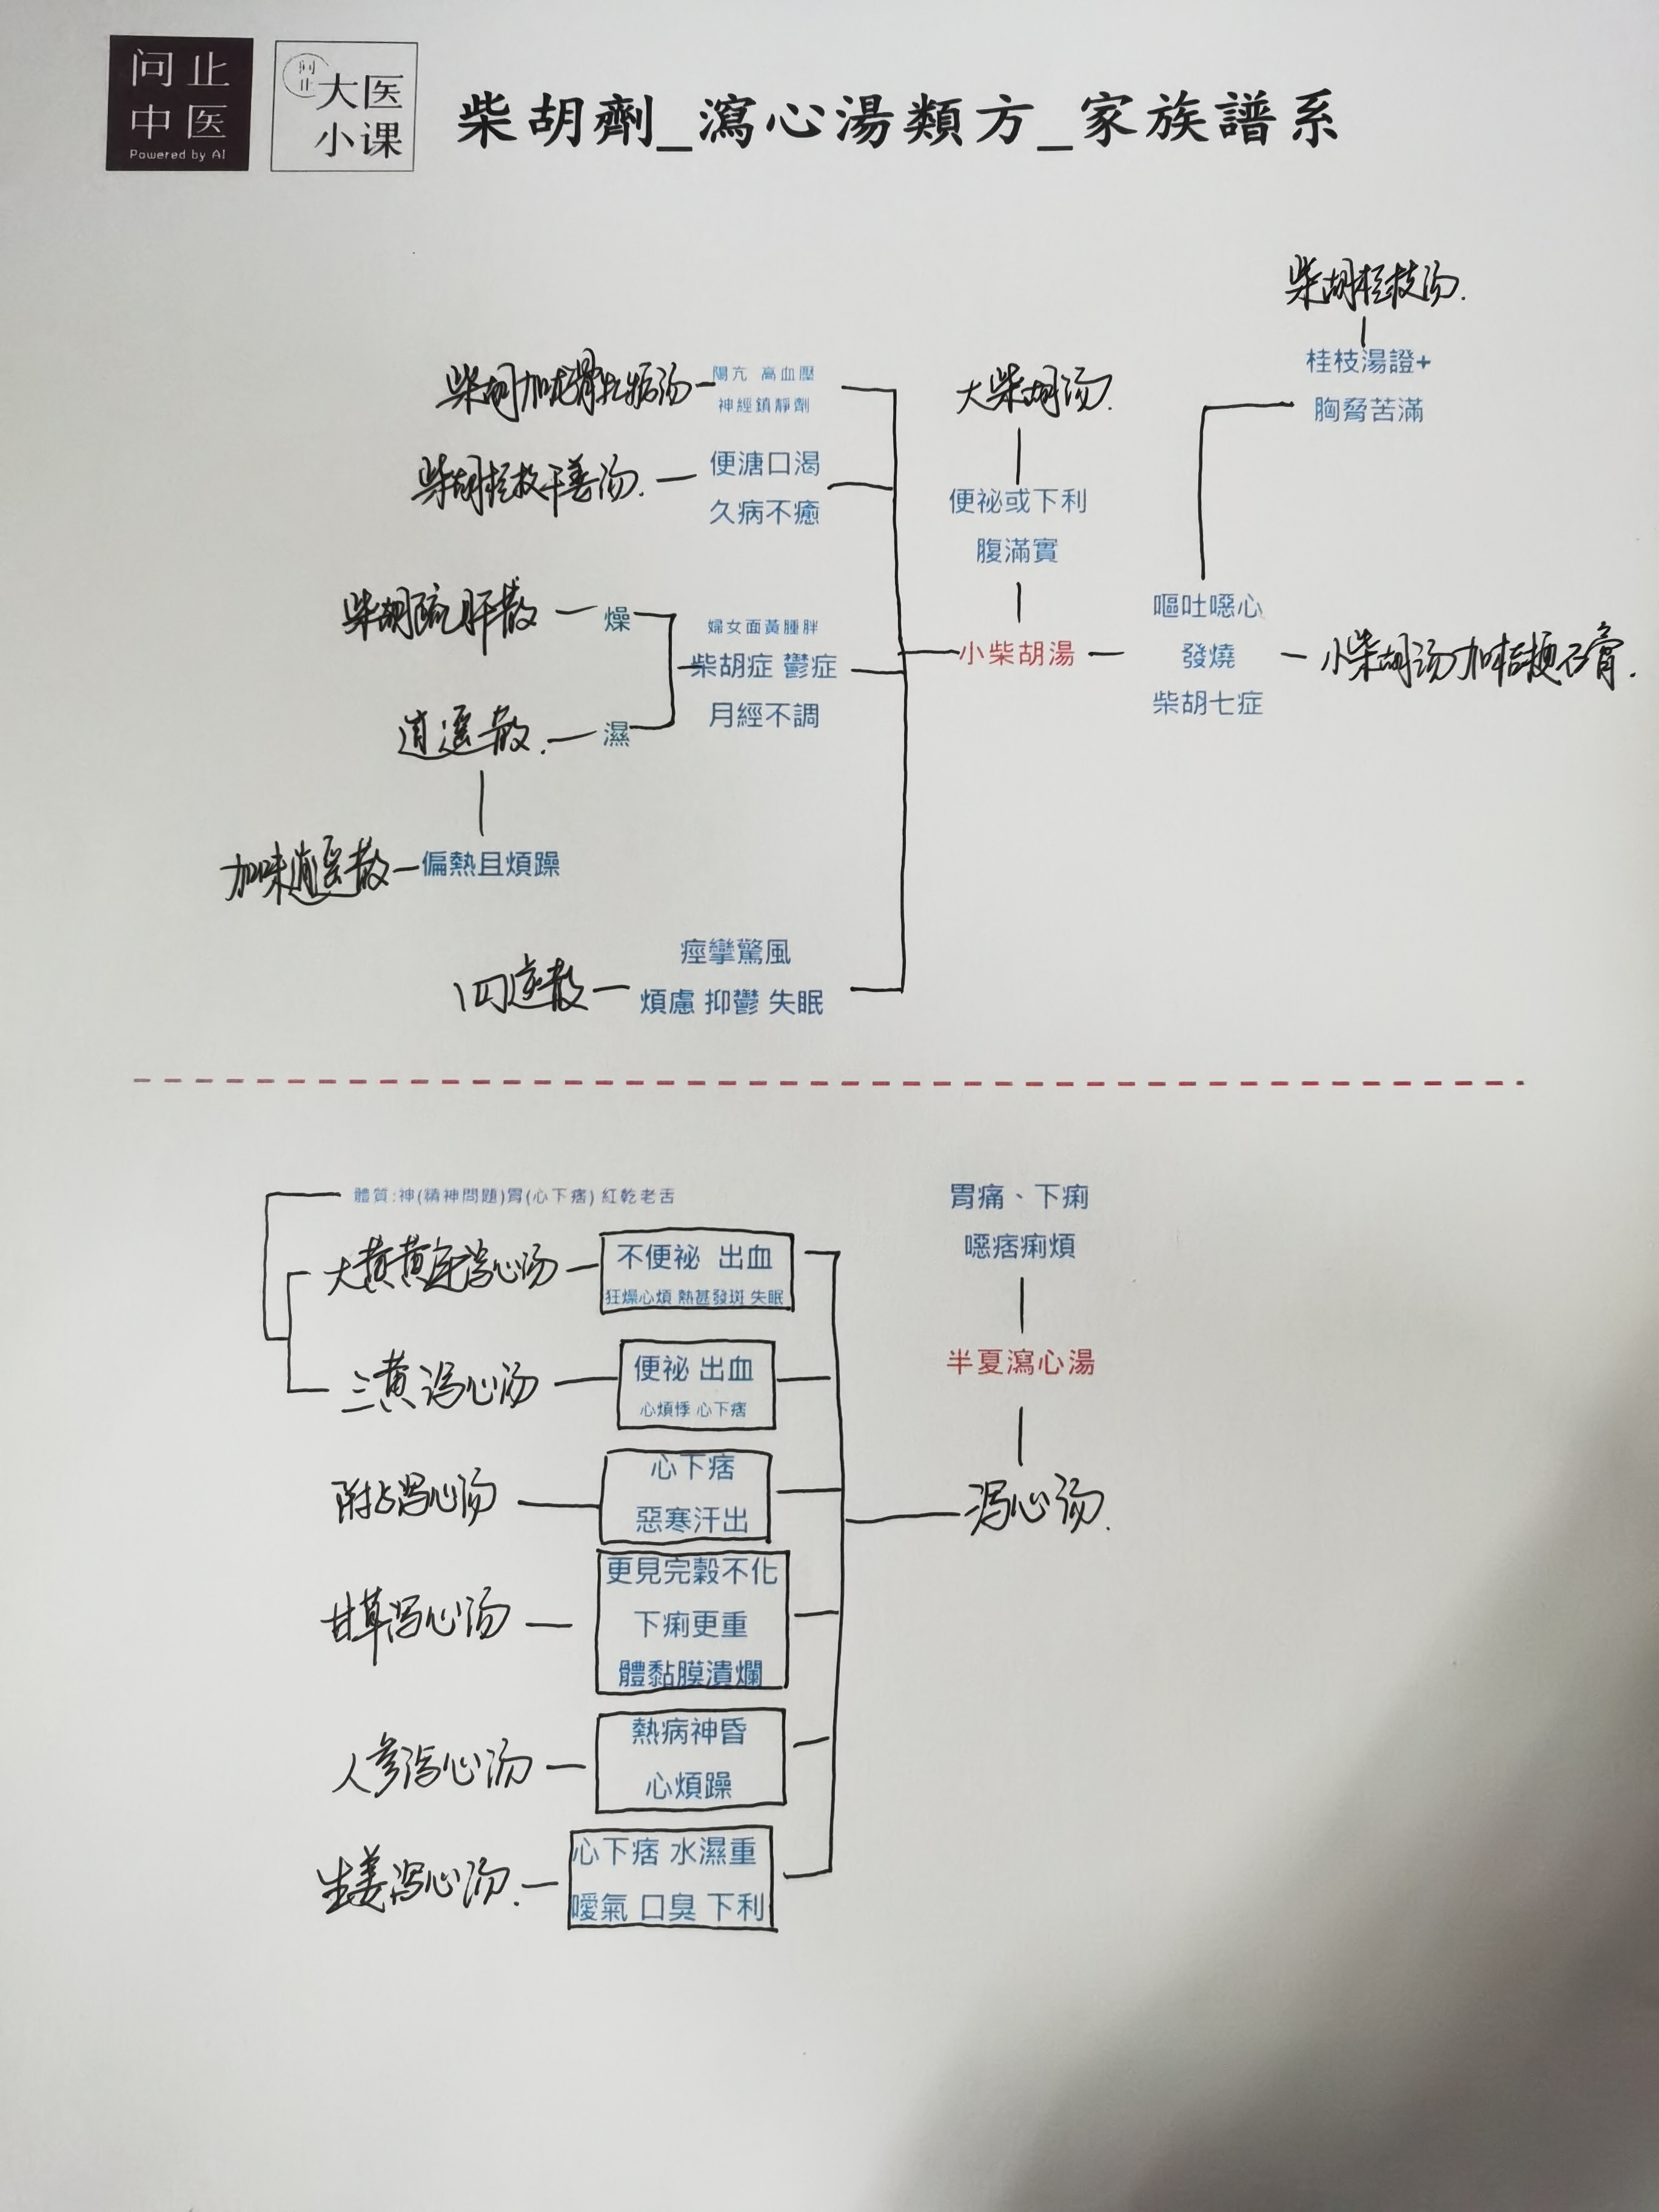 问止
中医
Powered by AI
问止
大医
小课
柴胡劑_瀉心湯類方_家族譜系
柴胡桂枝汤.
桂枝湯證+
胸脅苦滿
柴胡加龙骨牡蛎汤
陽亢 高血壓
神經鎮靜劑
大柴胡汤.
柴胡桂枝干姜汤.
便溏口渴
久病不癒
便祕或下利
腹滿實
柴胡疏肝散
燥
婦女面黃腫胖
柴胡症 鬱症
月經不調
小柴胡湯
嘔吐噁心
發燒
柴胡七症
小柴胡汤加桔梗石膏.
逍遥散.
濕
加味逍遥散
偏熱且煩躁
四逆散
痙攣驚風
煩慮 抑鬱 失眠
體質:神(精神問題)胃(心下痞) 紅乾老舌
胃痛、下痢
噁痞痢煩
大黄黄连泻心汤
不便祕 出血
狂燥心煩 熱甚發斑 失眠
半夏瀉心湯
三黄泻心汤
便祕 出血
心煩悸 心下痞
附子泻心汤
心下痞
惡寒汗出
泻心汤.
甘草泻心汤
更見完穀不化
下痢更重
體黏膜潰爛
人参泻心汤
熱病神昏
心煩躁
生姜泻心汤.
心下痞 水濕重
噯氣 口臭 下利